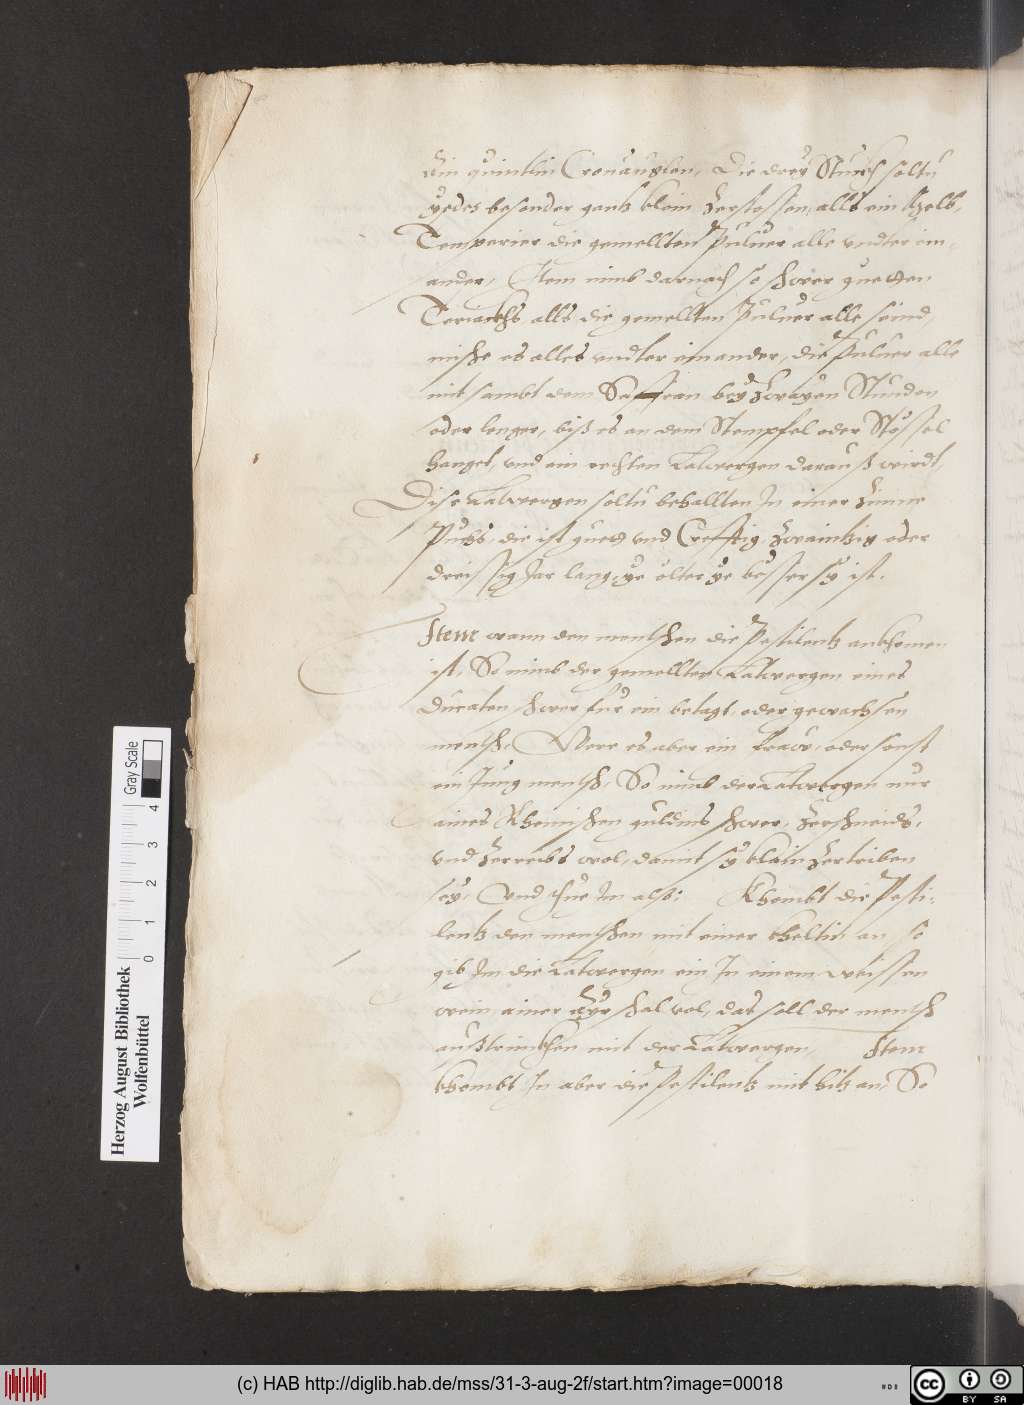 Ein quintlin Cronauglen, Die drey Stuckh soltu
yedes besonder gantz klein Zerstossen, alls ein Melb,
Temperier die gemellten Puluer alle vndter ein-
ander, Item nimb darnach so schwer gueten
Teriackhs, alls die gemellten Puluer alle seind,
mische es alles vndter einander, die Puluer alle
mit sambt dem Saffran bey Zwayen Stunden
oder lenger, biß es an dem Stempfel oder Stössel
hanget, vnd ein rechten Latwergen darauß wirdt,
Dise Latwergen soltu behallten In einer Zinine
Puchs, die ist guet vnd Crefftig, Zwaintzig oder
dreissig Jar lang, ye ölter ye besser sy ist.
Item wann den menschen die Pestilentz ankhomen
ist, So nimb der gemellten Latwergen eines
Ducaten schwer für ein betagt, oder gewachsen
mensch, Were es aber ein fraw, oder sonst
ein Jung mensch, So nimb der Latwergen nur
aines Rheinischen guldins schwer, Zerschneids,
vnd Zerreibs wol, damit sy klain Zertriben
sey, Vnd thue Im also: Khombt die Pesti-
lentz den menschen mit einer kheltin an so
gib Im die Latwergen ein In einem weissen
wein, ainer ayr schal vol, das soll der mensch
außtrinckhen mit der Latwergen, Item
khombt In aber die Pestilentz mit hitz an, So
Herzog August Bibliothek
Wolfenbüttel
0 1 2 3 4
Gray Scale
(c) HAB http://diglib.hab.de/mss/31-3-aug-2f/start.htm?image=00018
cc BY SA